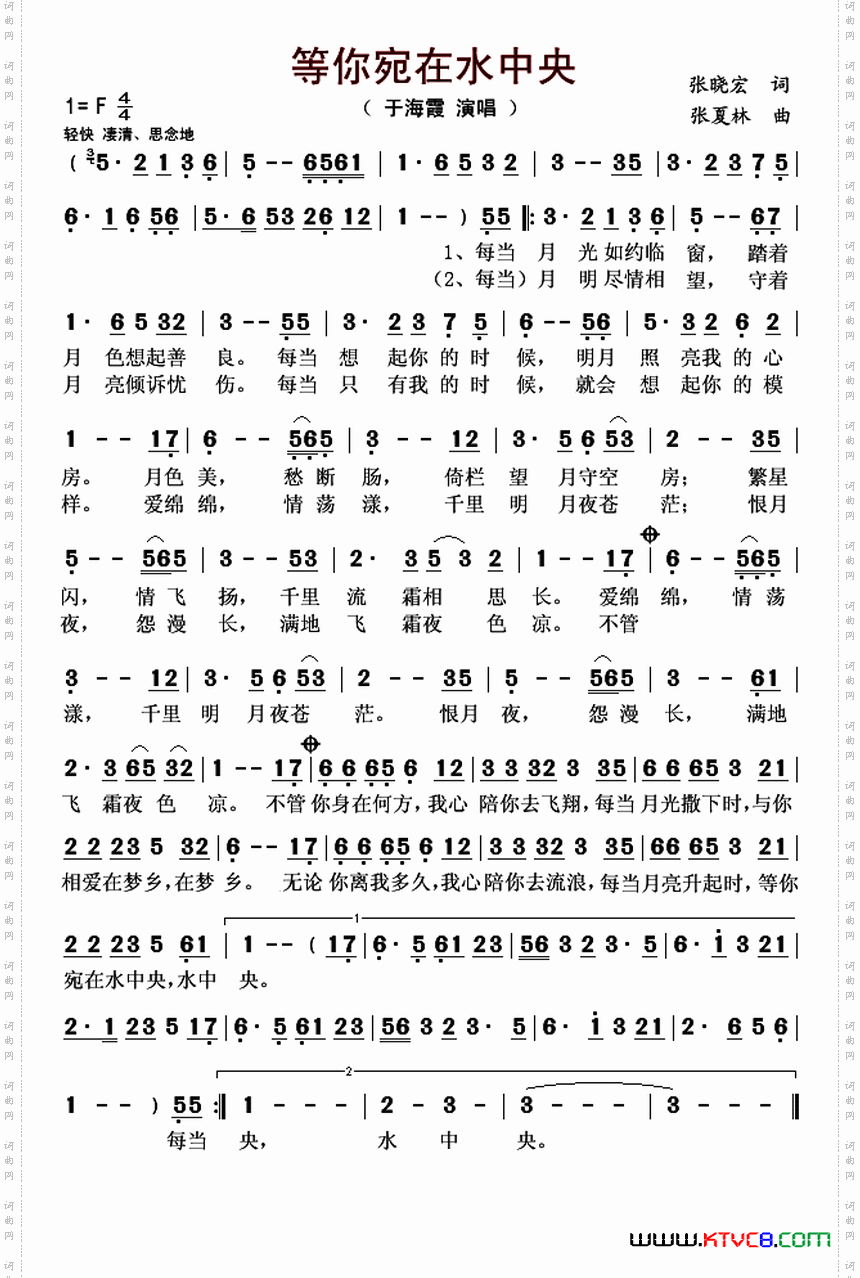 等你宛在水中央
1= F 4/4
（ 于海霞 演唱 ）
张晓宏 词
张夏林 曲
轻快 凄清、思念地
( 3 5· 2 1 3 6 | 5 - - 6561 | 1· 6 5 32 | 3 - - 35 | 3· 2 3 7 5 |
6· 1 6 56 | 5· 6 53 26 12 | 1 - - ) 55 ‖: 3· 2 1 3 6 | 5 - - 67 |
1、每当 月 光 如约临 窗， 踏着
（2、每当）月 明 尽情相 望， 守着
1· 6 5 32 | 3 - - 55 | 3· 2 3 7 5 | 6 - - 56 | 5· 3 2 6 2 |
月 色想起善 良。 每当 想 起你 的 时 候， 明月 照 亮我 的 心
月 亮倾诉忧 伤。 每当 只 有我 的 时 候， 就会 想 起你 的 模
1 - - 17 | 6 - - 565 | 3 - - 12 | 3· 5 6 53 | 2 - - 35 |
房。 月色 美， 愁 断 肠， 倚栏 望 月守空 房； 繁星
样。 爱绵 绵， 情 荡 漾， 千里 明 月夜苍 茫； 恨月
5 - - 565 | 3 - - 53 | 2· 3 5 3 2 | 1 - - 17 | 6 - - 565 |
闪， 情 飞 扬， 千里 流 霜相 思 长。 爱绵 绵， 情 荡
夜， 怨 漫 长， 满地 飞 霜夜 色 凉。 不管
3 - - 12 | 3· 5 6 53 | 2 - - 35 | 5 - - 565 | 3 - - 61 |
漾， 千里 明 月夜苍 茫。 恨月 夜， 怨 漫 长， 满地
2· 3 65 32 | 1 - - 17 | 6 6 65 6 12 | 3 3 32 3 35 | 6 6 65 3 21 |
飞 霜夜 色 凉。 不管 你 身在何方，我心 陪你去飞翔，每当 月光撒下时，与你
2 2 23 5 32 | 6 - - 17 | 6 6 65 6 12 | 3 3 32 3 35 | 66 65 3 21 |
相爱在梦乡，在梦 乡。 无论 你离我多久，我心 陪你去流浪，每当 月亮升起时，等你
1
2 2 23 5 61 | 1 - - ( 17 | 6· 5 61 23 | 56 3 2 3· 5 | 6· 1 3 21 |
宛在水中央，水中 央。
2· 1 23 5 17 | 6· 5 61 23 | 56 3 2 3· 5 | 6· 1 3 21 | 2· 6 5 6 |
2
1 - - ) 55 :‖ 1 - - - | 2 - 3 - | 3 - - - | 3 - - - ‖
每当 央， 水 中 央。
www.KTVC8.com